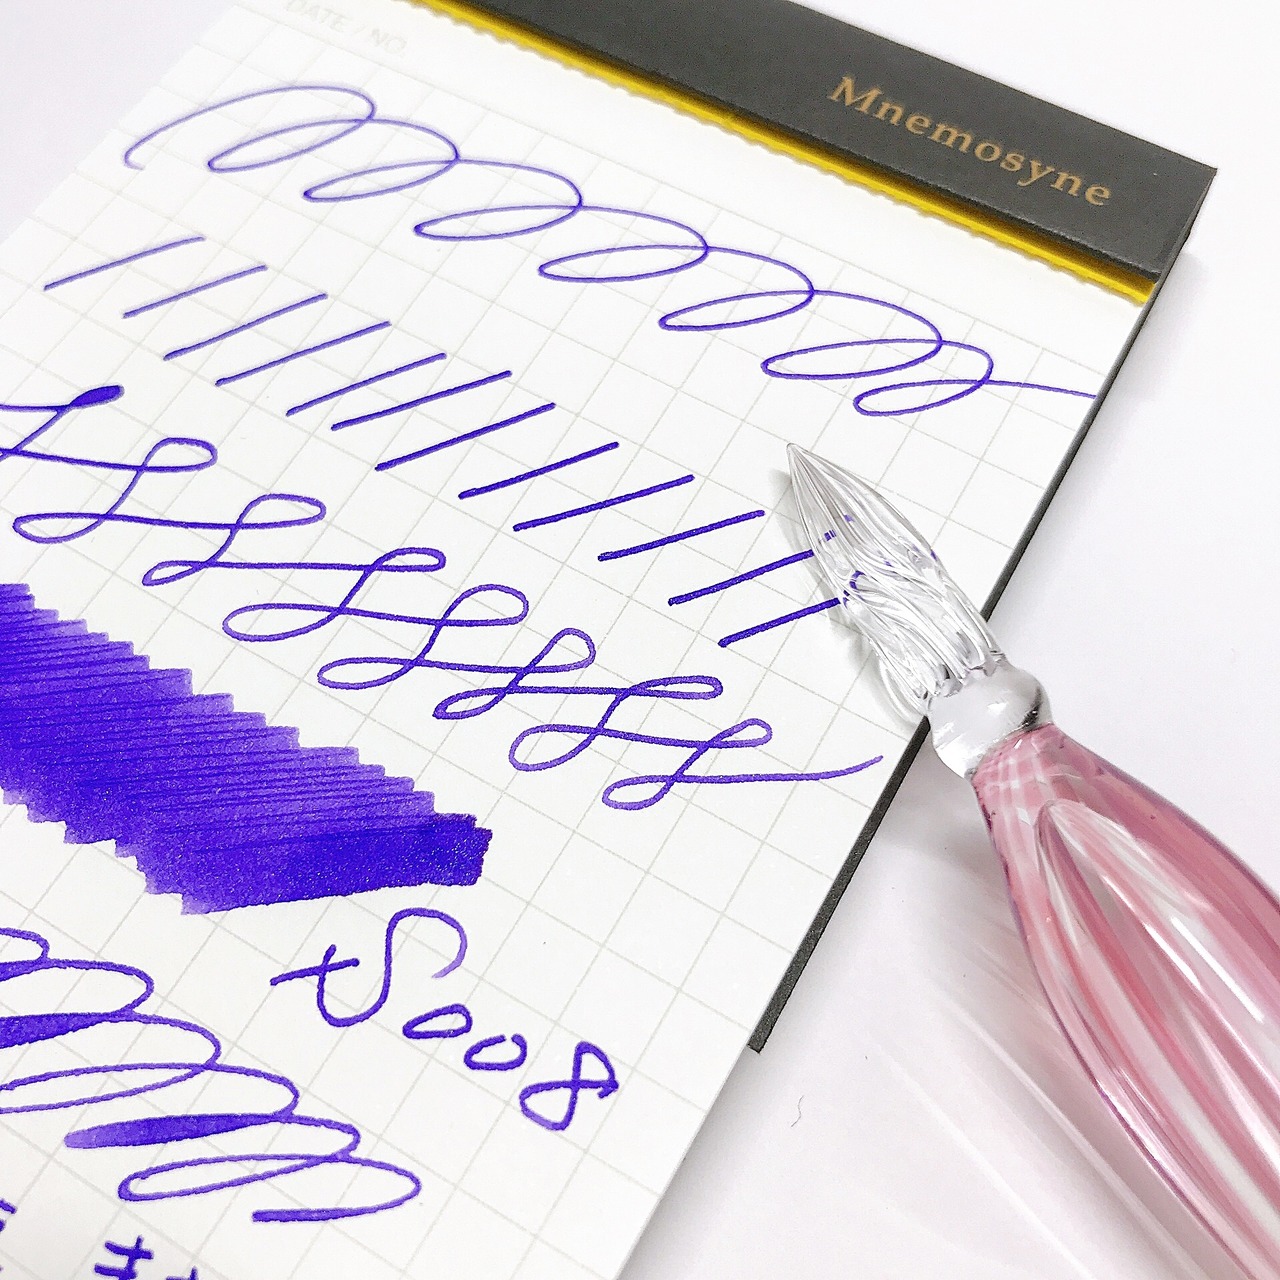 DATE / NO.
Mnemosyne
S008